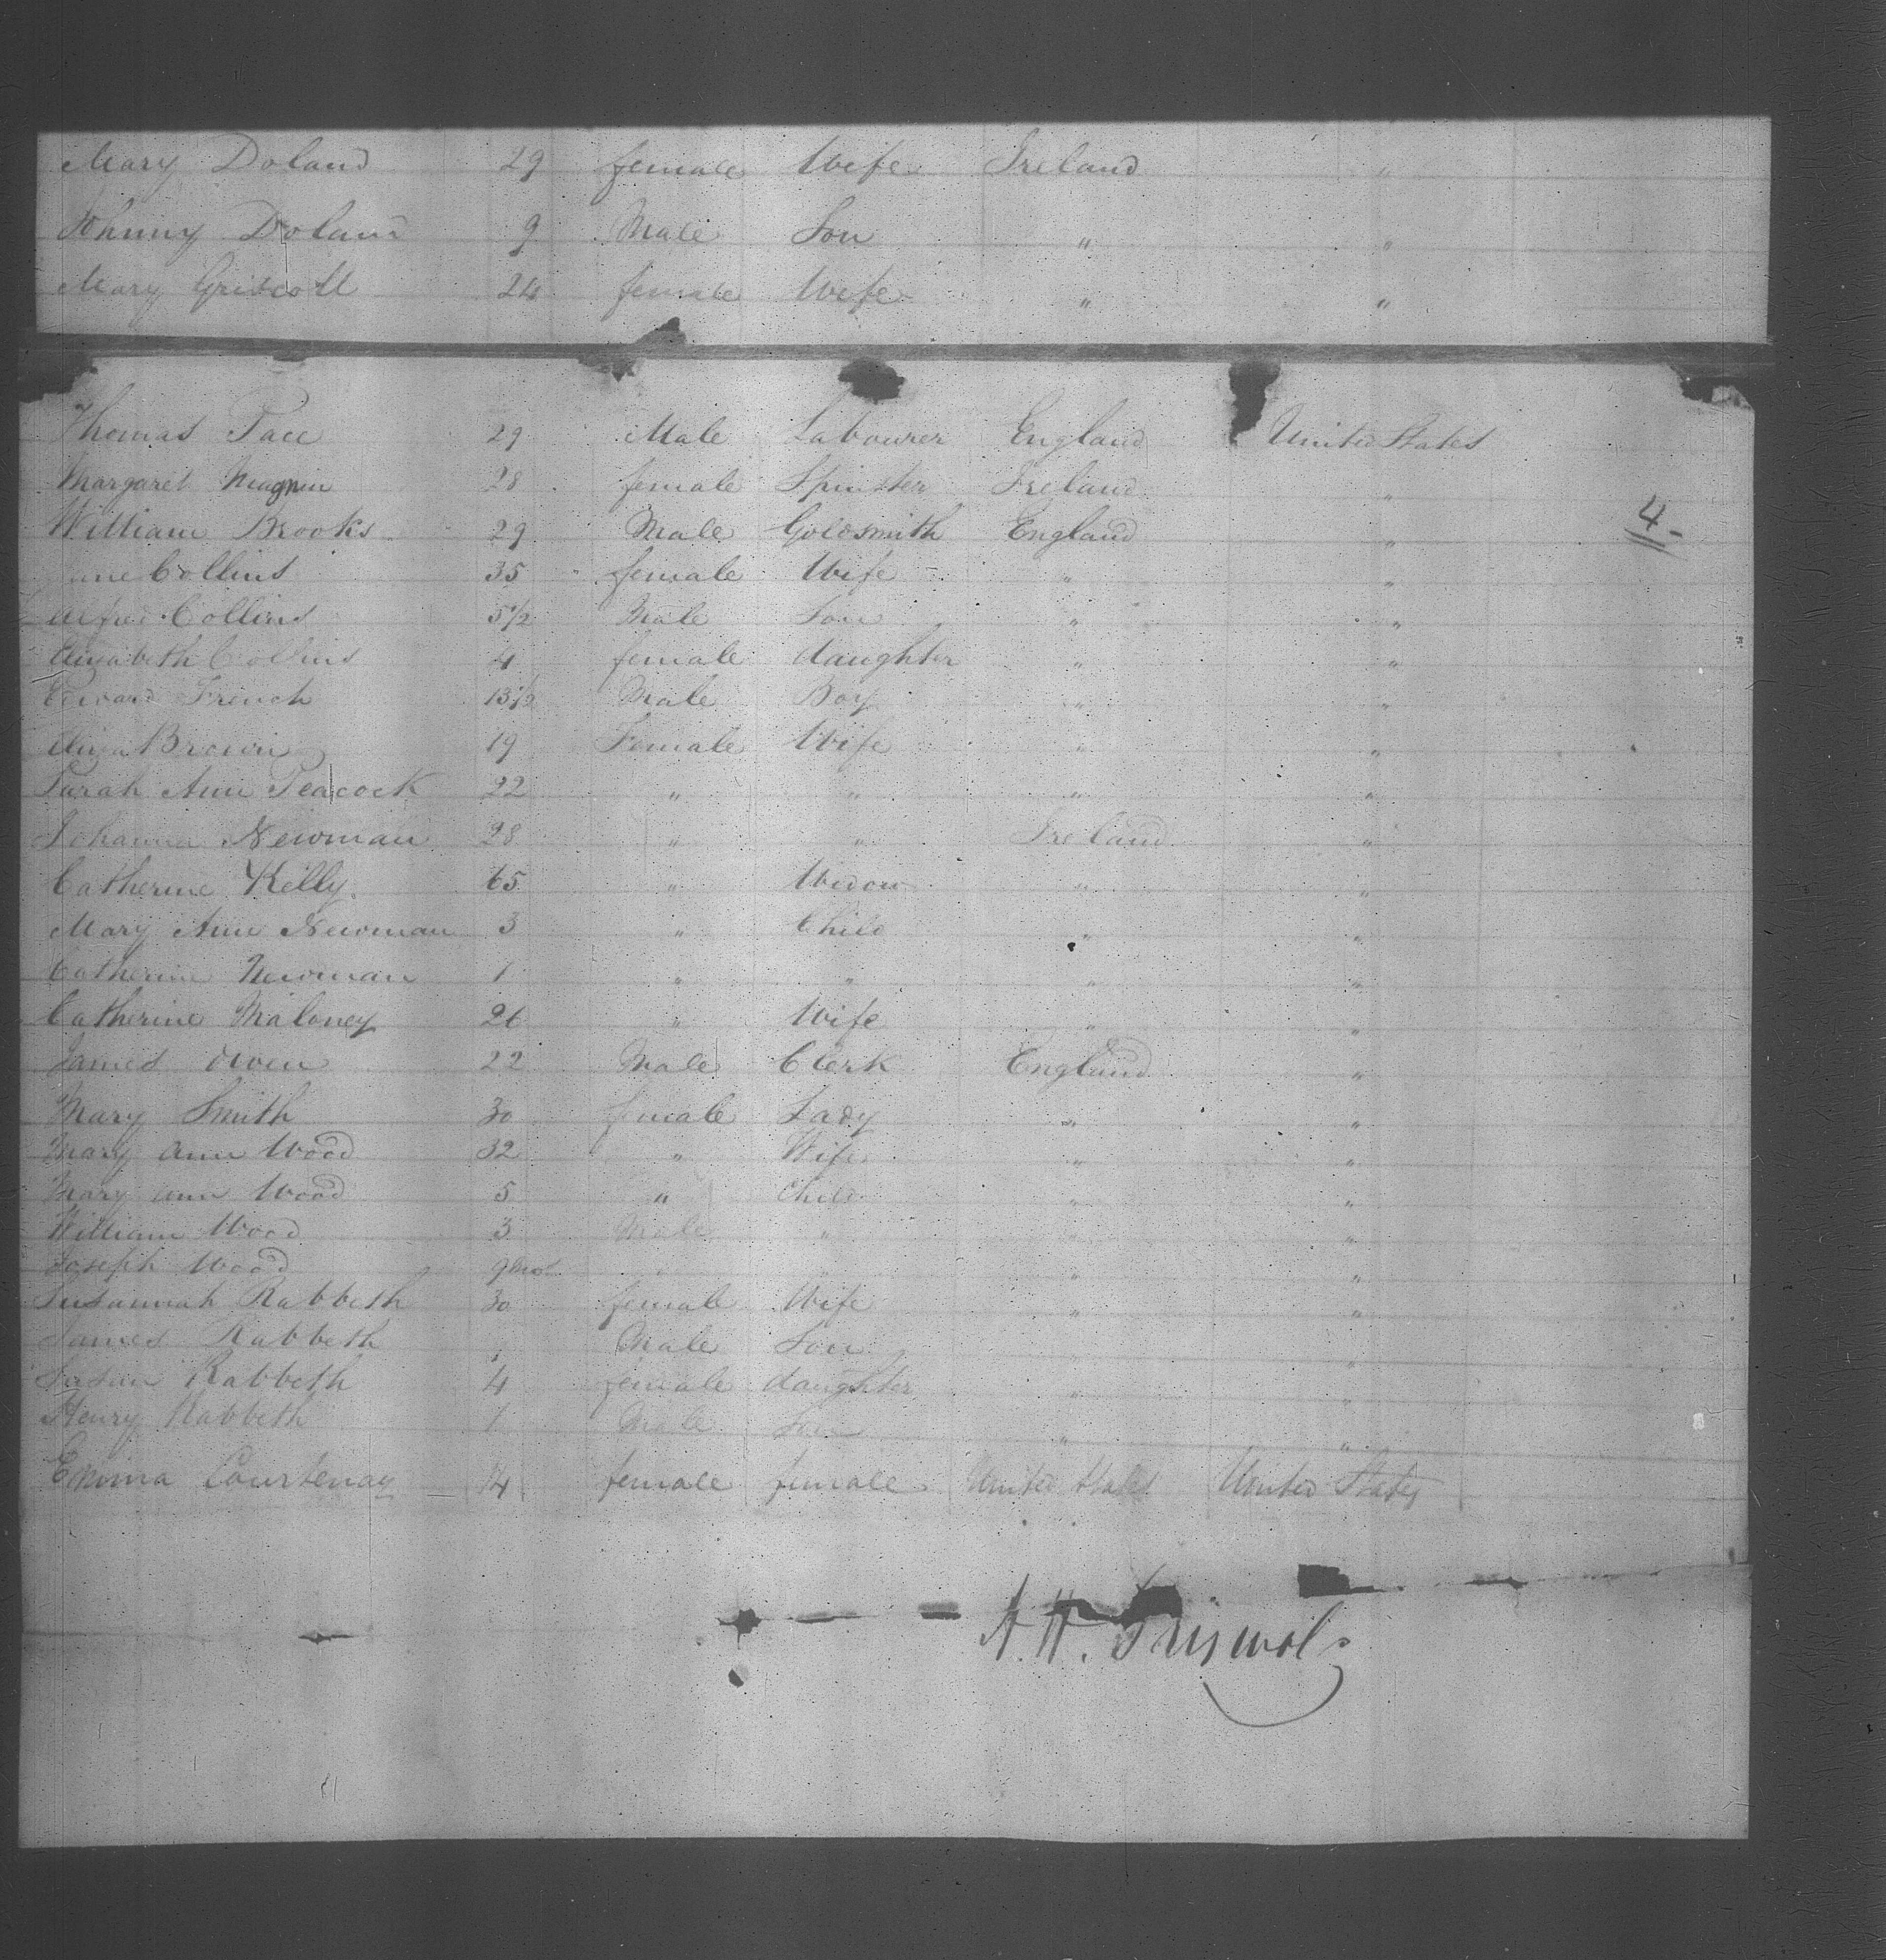 Mary Doland 29 female Wife Ireland "
Johnny Doland 9 Male Son " "
Mary Griscoll 24 female Wife " "
Thomas Pace 29 Male Labourer England United States
Margaret 28 female Spinster Ireland "
William Brooks 29 Male Goldsmith England "
Jane Collins 35 female Wife " "
Alfred Collins 5 1/2 Male Son " "
Elizabeth Collins 4 female daughter " "
Edward French 13 1/2 Male Boy " "
Eliza Brown 19 Female Wife " "
Sarah Ann Peacock 22 " " " "
Johanna Newman 28 " " Ireland "
Catherine Kelly 65 " Widow " "
Mary Ann Newman 3 " Child " "
Catherine Newman 1 " " " "
Catherine Maloney 26 " Wife " "
James Owen 22 Male Clerk England "
Mary Smith 30 female Lady " "
Mary Ann Wood 32 " Wife " "
Mary Ann Wood 5 " Child " "
William Wood 3 Male " " "
Joseph Wood 9 mos " " " "
Susannah Rabbeth 30 female Wife " "
James Rabbeth Male Son " "
Susan Rabbeth 4 female daughter " "
Henry Rabbeth 1 Male Son " "
Emma Courtenay 14 female female United States United States
4
A. H. Griswold